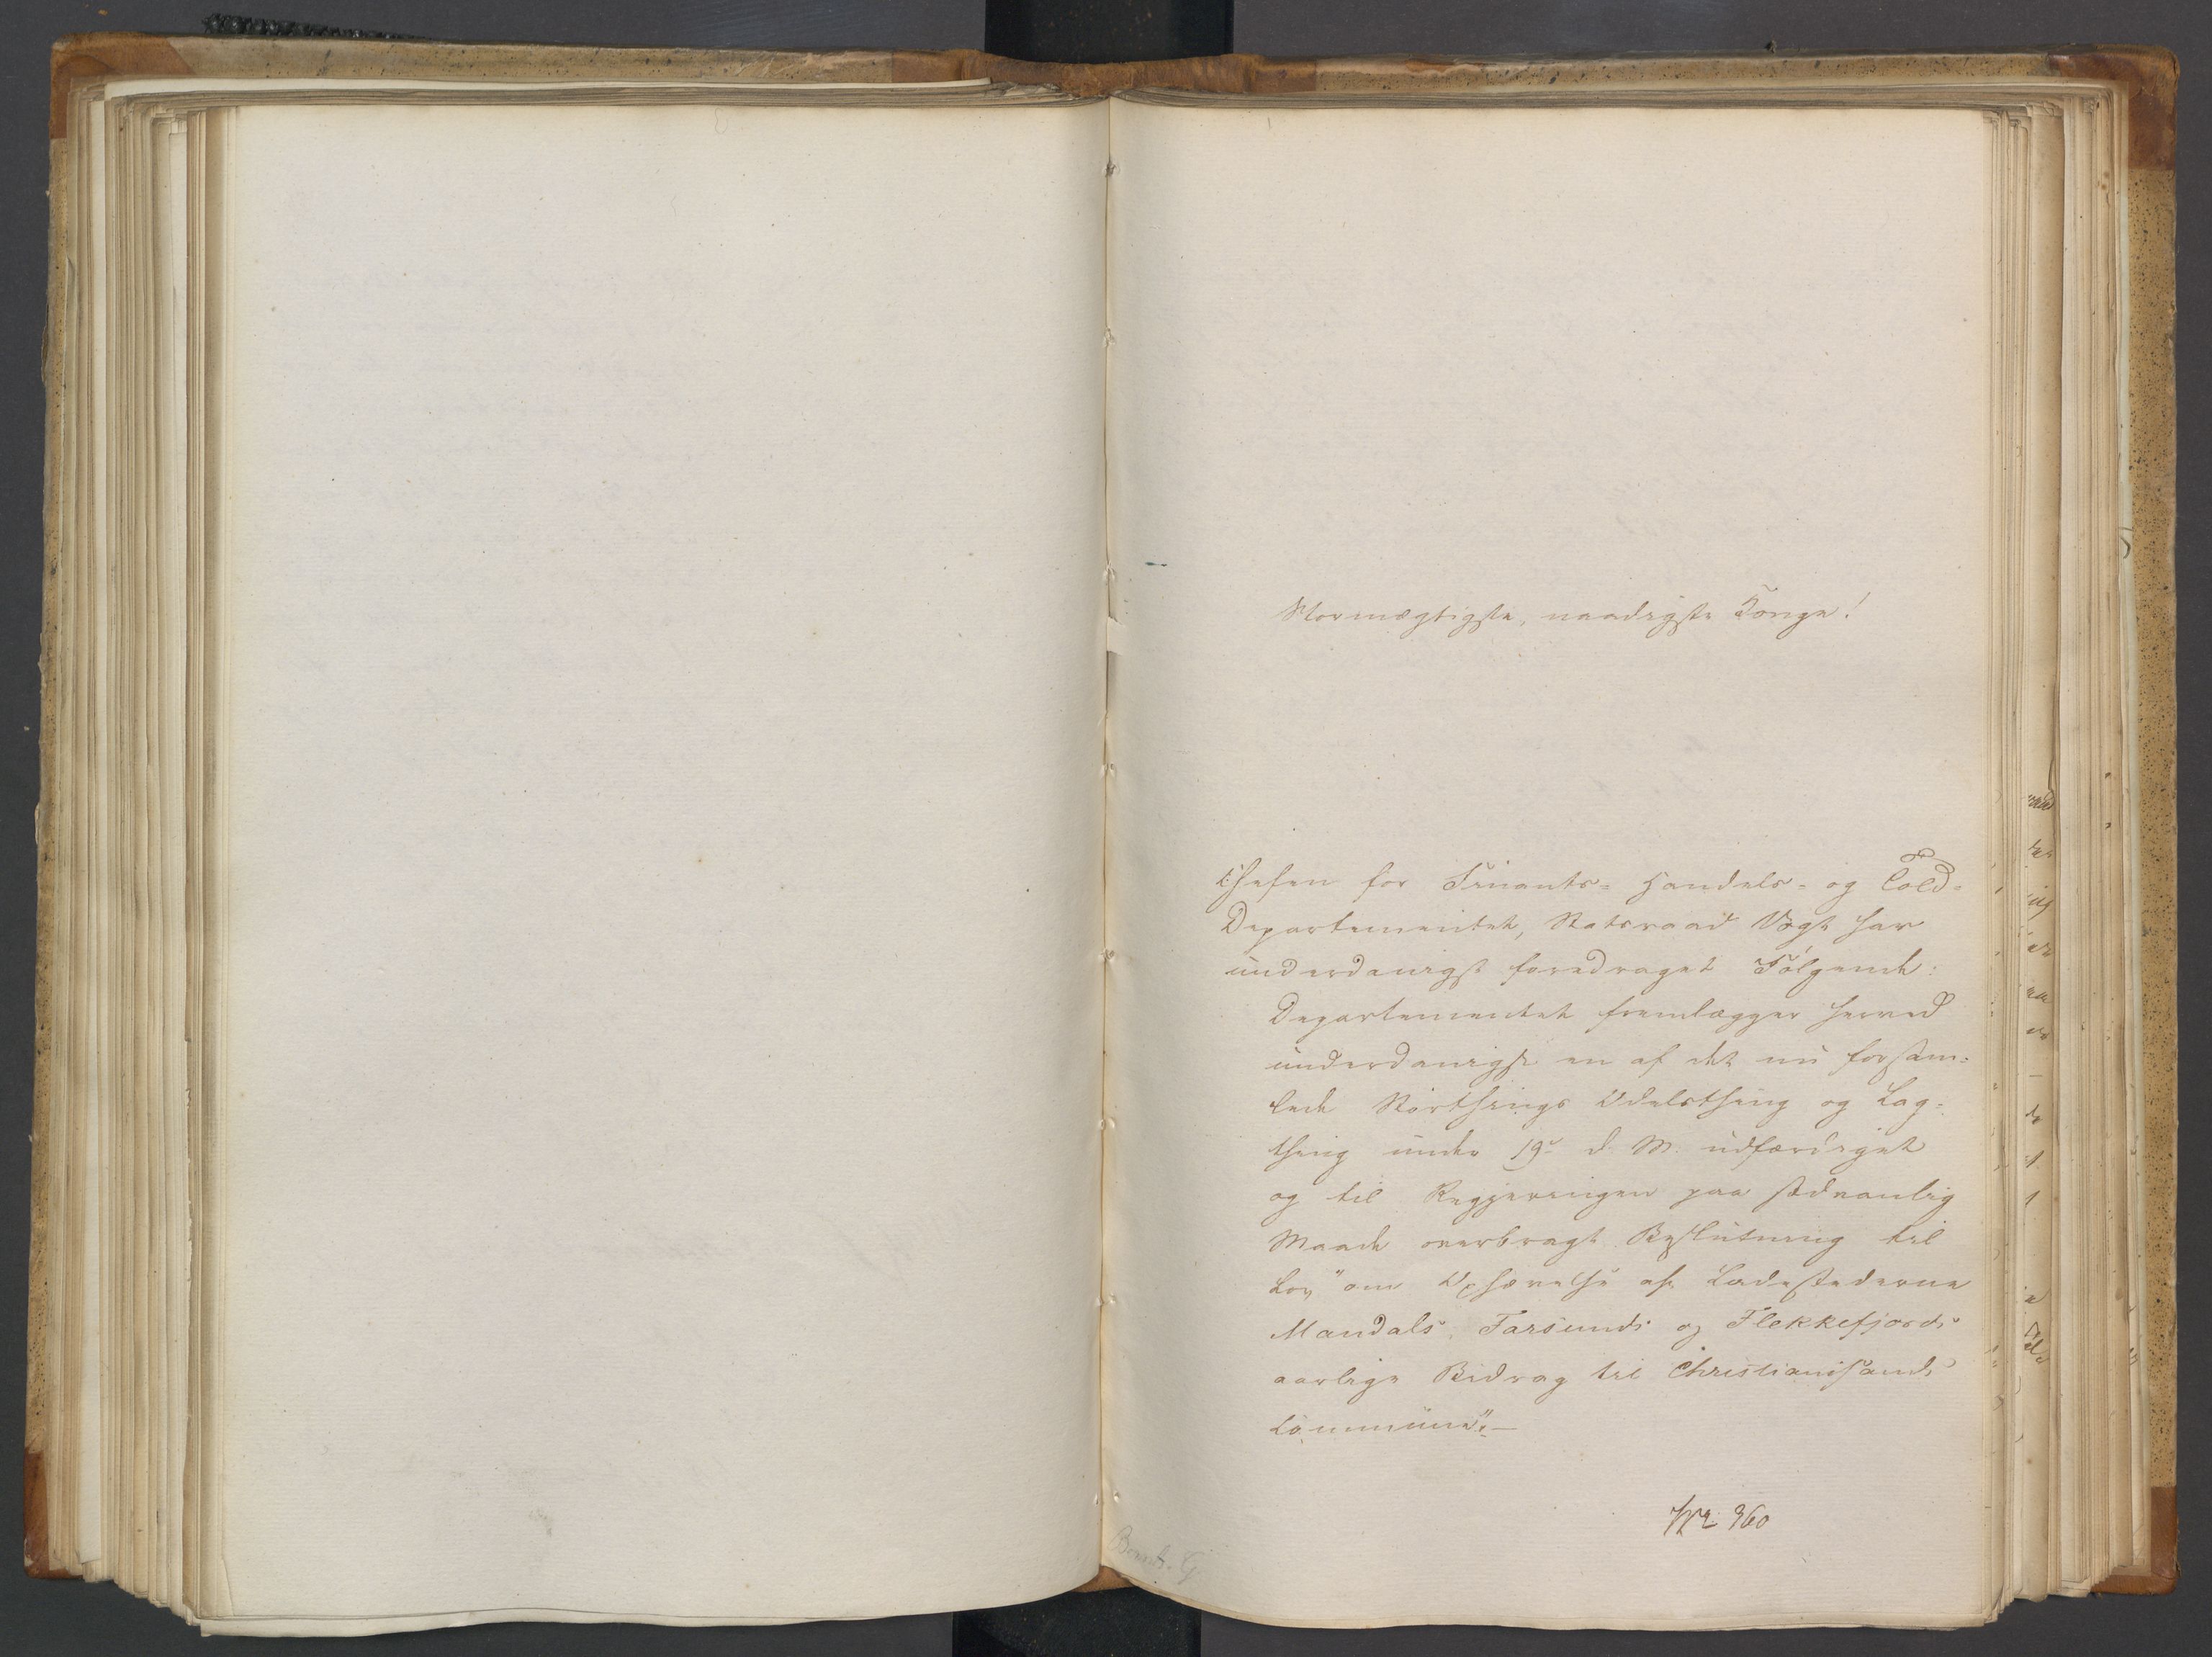 Stormægtigste, naadigste Konge!
Chefen for Finants- Handels- og Told-
Departementet, Statsraad Vogt har
underdanigst foredraget Følgende:
Departementet fremlægger herved
underdanigst en af det nu forsam-
lede Storthings Odelsthing og Lag-
thing under 19de d. M. udfærdiget
og til Regjeringen paa sædvanlig
Maade overbragt Beslutning til
Lov "om Ophævelse af Ladestederne
Mandals, Farsunds og Flekkefjords
aarlige Bidrag til Christiansands
Commune".—
No 360